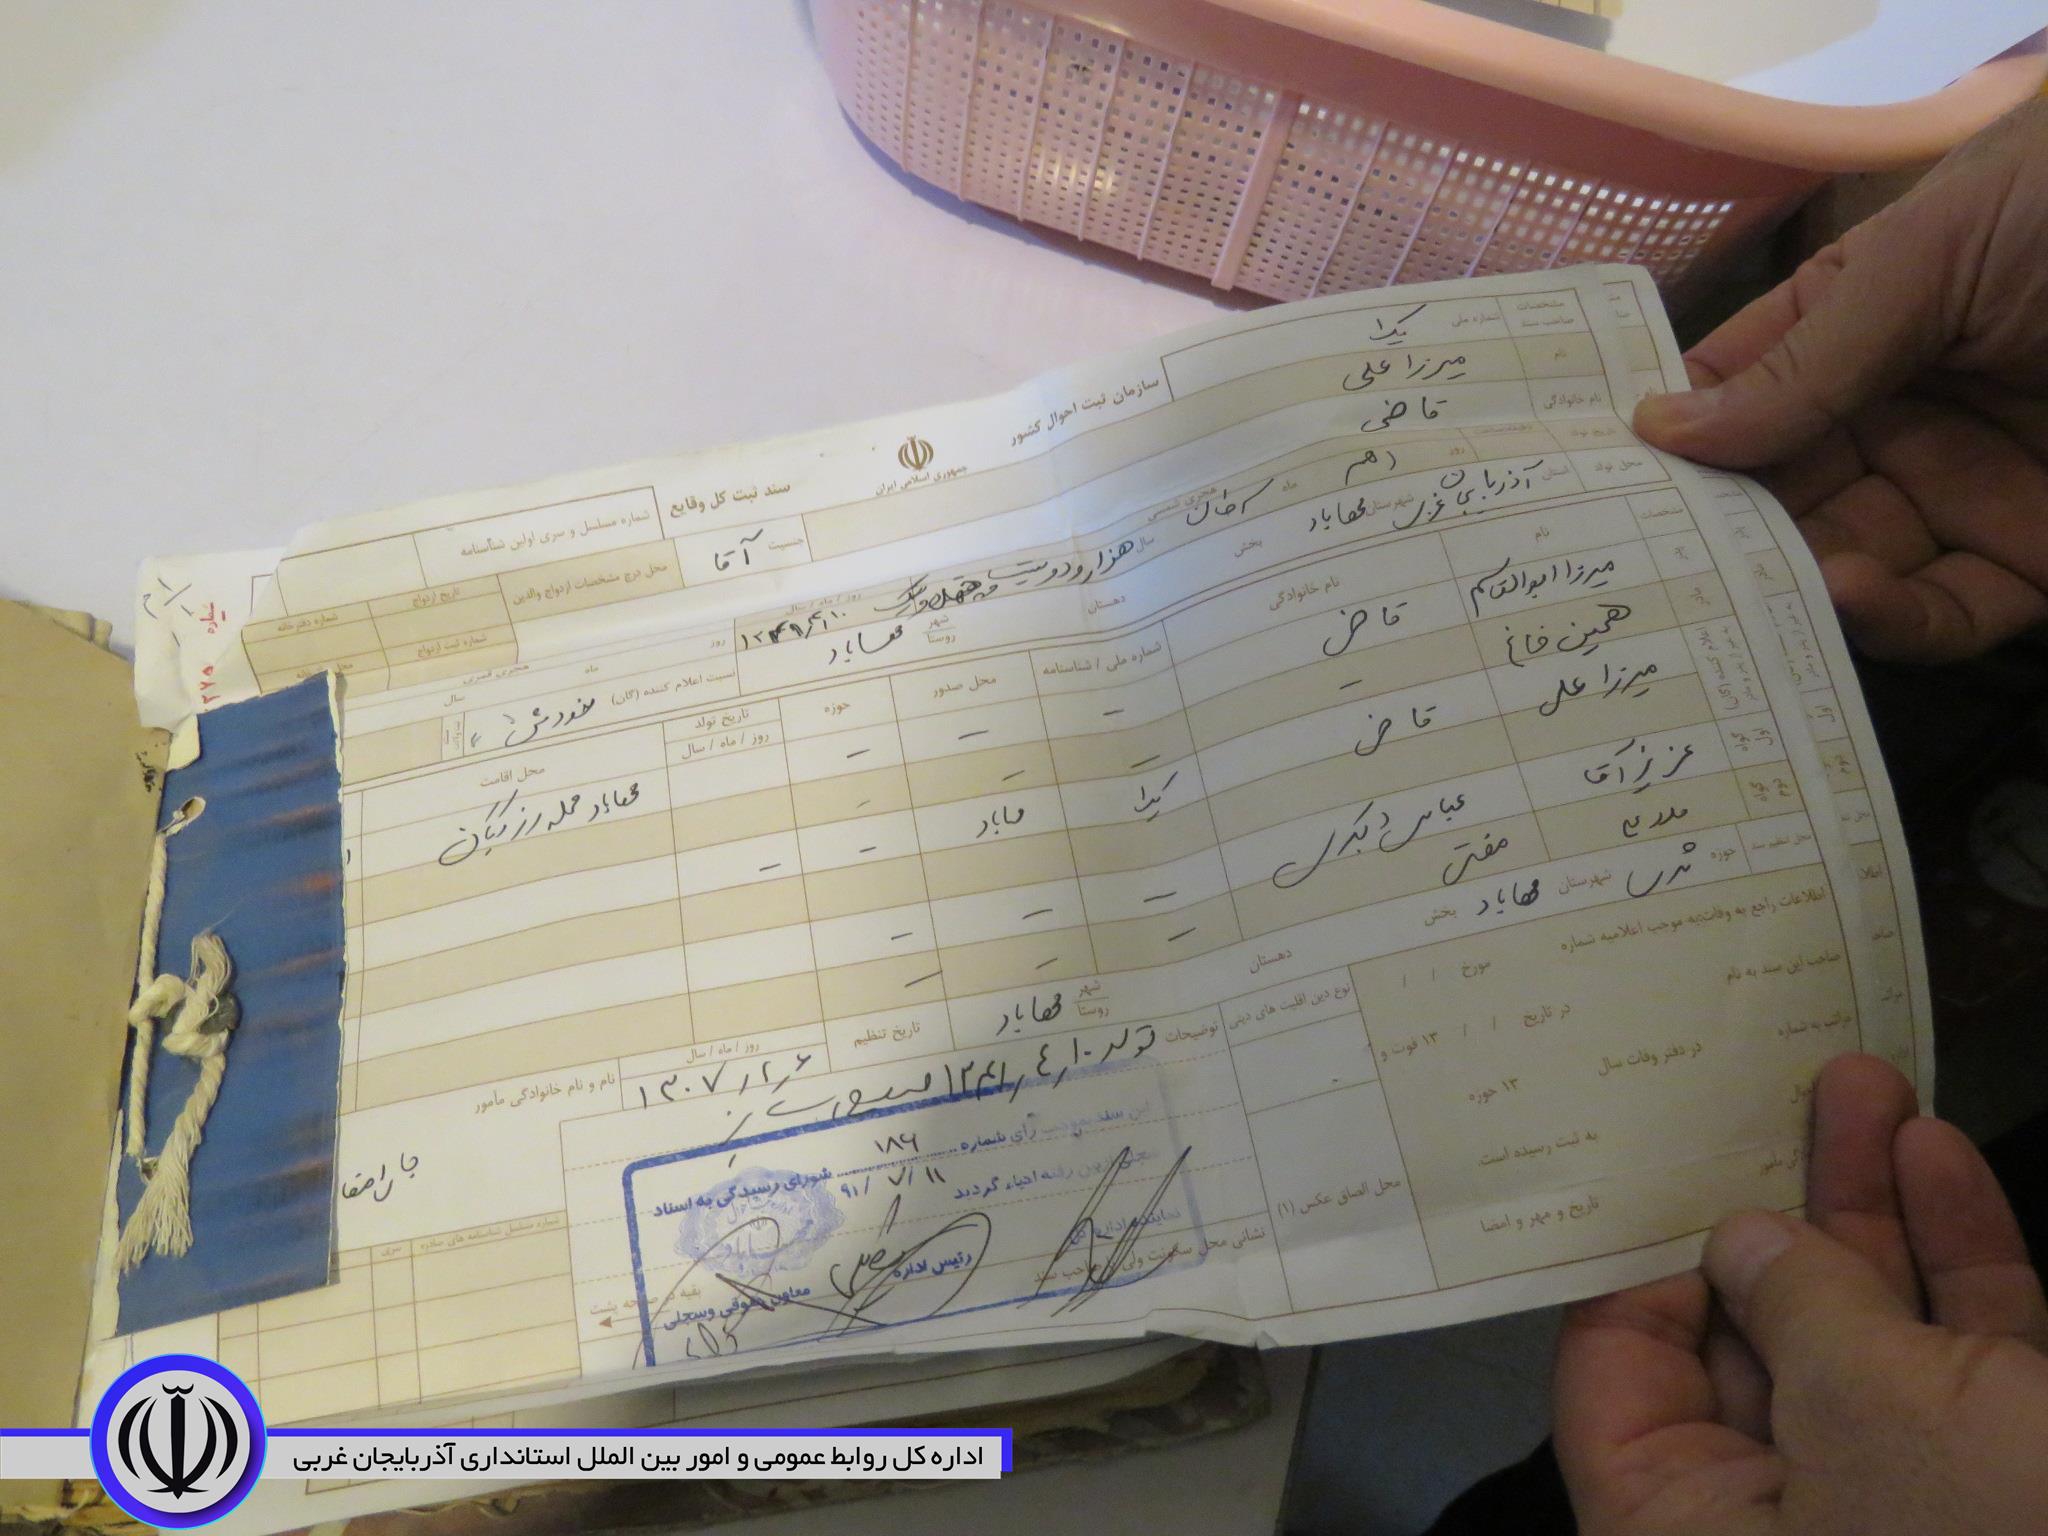 سازمان ثبت احوال کشور
جمهوری اسلامی ایران
سند ثبت کل وقایع
شماره مسلسل و سری اولین شناسنامه
مشخصات صاحب سند
شماره ملی
یک
نام
میرزا علی
جنسیت
آقا
محل درج مشخصات ازدواج والدین
تاریخ ازدواج
شماره دفترخانه
شماره ثبت ازدواج
نام خانوادگی
قاضی
تاریخ تولد
روز
دهم
ماه
هجری شمسی
سال
هزار و دویست و چهل و یک
روز / ماه / سال
روز
ماه
هجری قمری
سال
محل تولد
استان
آذربایجان غربی
شهرستان
مهاباد
بخش
دهستان
شهر
روستا
مهاباد
نسبت اعلام کننده (گان)
خودش
مشخصات
نام
نام خانوادگی
شماره ملی / شناسنامه
محل صدور
حوزه
تاریخ تولد
روز / ماه / سال
محل اقامت
پدر
میرزا ابوالقاسم
قاضی
مادر
همین خانم
میرزا علی
قاضی
یک
مهاباد
مهاباد محله رزگیان
گواه اول
عزیز آقا
عباسی
گواه دوم
مفتی
محل تنظیم سند
حوزه
شهرستان
مهاباد
بخش
دهستان
شهر
روستا
مهاباد
تاریخ تنظیم
روز / ماه / سال
۱۳۰۷/۲/۶
نام و نام خانوادگی مأمور
اطلاعات راجع به وفات: به موجب اعلامیه شماره
مورخ / /
صاحب این سند به نام
در تاریخ / / ۱۳ فوت و
مراتب به شماره
در دفتر وفات سال
۱۳ حوزه
به ثبت رسیده است.
تاریخ و مهر و امضا
نوع دین اقلیت های دینی
محل الصاق عکس (۱)
توضیحات
تولد ۱۰/۴/۱۲۴۱
این سند بموجب رأی شماره ۱۸۶
۹۱/۷/۱۱ شورای رسیدگی به اسناد
سجلی از بین رفته احیاء گردید
نماینده اداره
رئیس اداره
معاون حقوقی وسجلی
نشانی محل سکونت ولی یا صاحب سند
بقیه در صفحه پشت
شماره مسلسل شناسنامه های صادره
سری
شماره
اداره کل روابط عمومی و امور بین الملل استانداری آذربایجان غربی